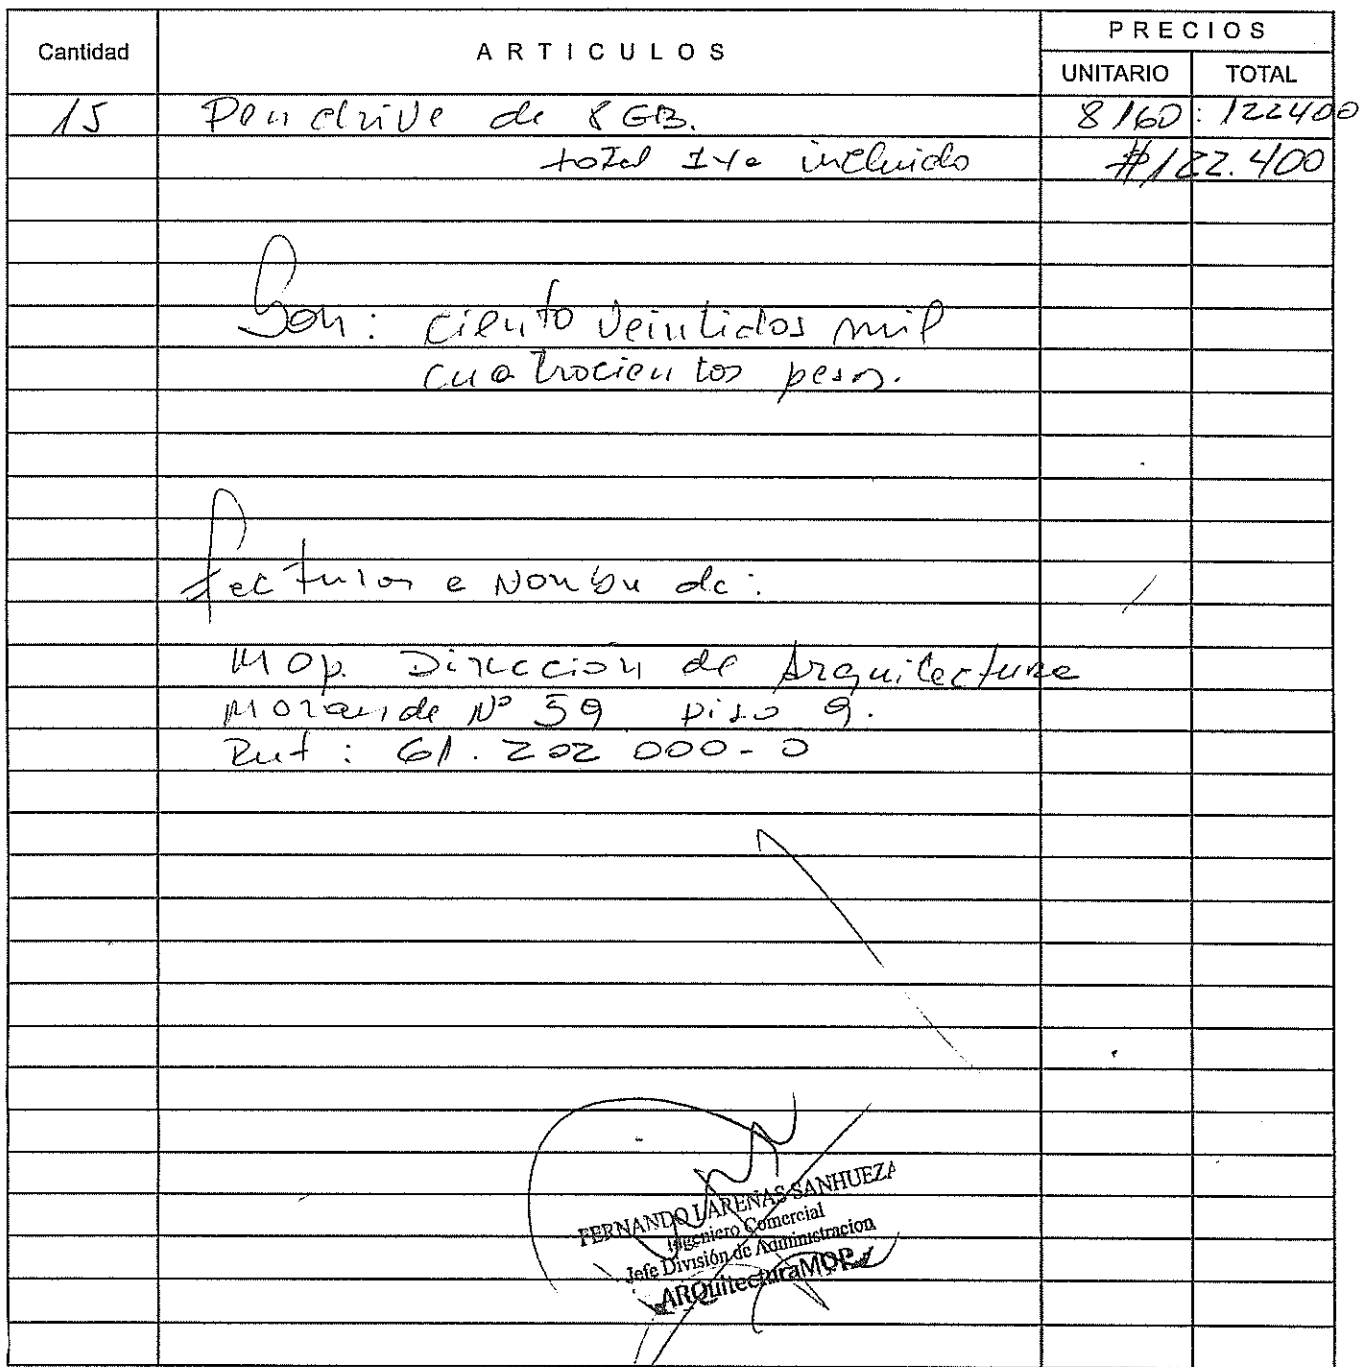 PRECIOS
Cantidad ARTICULOS UNITARIO TOTAL
15 Pendrive de 8 GB. 8160: 122400
total IVA incluido #122.400
Son: ciento veintidos mil
cuatrocientos pesos.
facturar a Nombre de:
MOP. Dirección de Arquitectura
Morande Nº 59 piso 9.
Rut: 61.202 000-0
FERNANDO LARENAS SANHUEZA
Ingeniero Comercial
Jefe División de Administracion
ARQuitecturaMOP